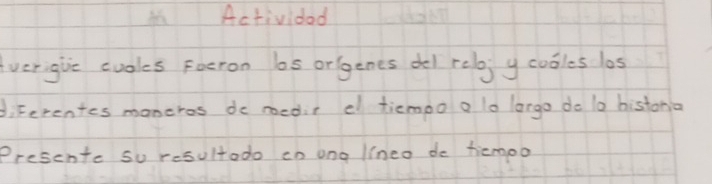 Actividad
Averigüe cuales Fueron los orígenes del reloj y cuáles los
diferentes maneras de medir el tiempo a lo largo de la historia
Presente su resultado en una línea de tiempo